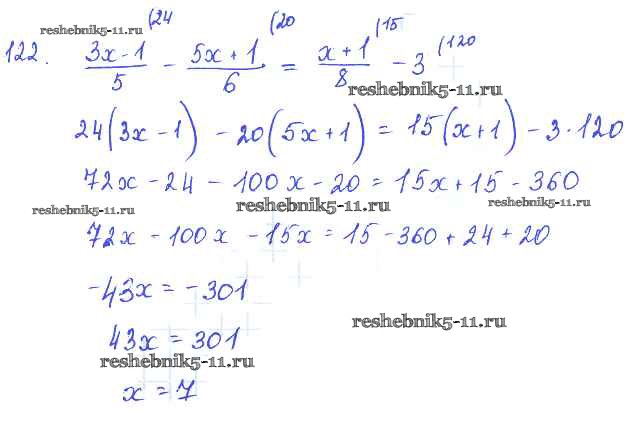 reshebnik5-11.ru (24 (20 (15 (120
122. (3x-1)/5 - (5x+1)/6 = (x+1)/8 - 3
reshebnik5-11.ru
24(3x-1) - 20(5x+1) = 15(x+1) - 3·120
72x - 24 - 100x - 20 = 15x + 15 - 360
reshebnik5-11.ru reshebnik5-11.ru reshebnik5-11.ru
72x - 100x - 15x = 15 - 360 + 24 + 20
-43x = -301
reshebnik5-11.ru
43x = 301
reshebnik5-11.ru
x = 7